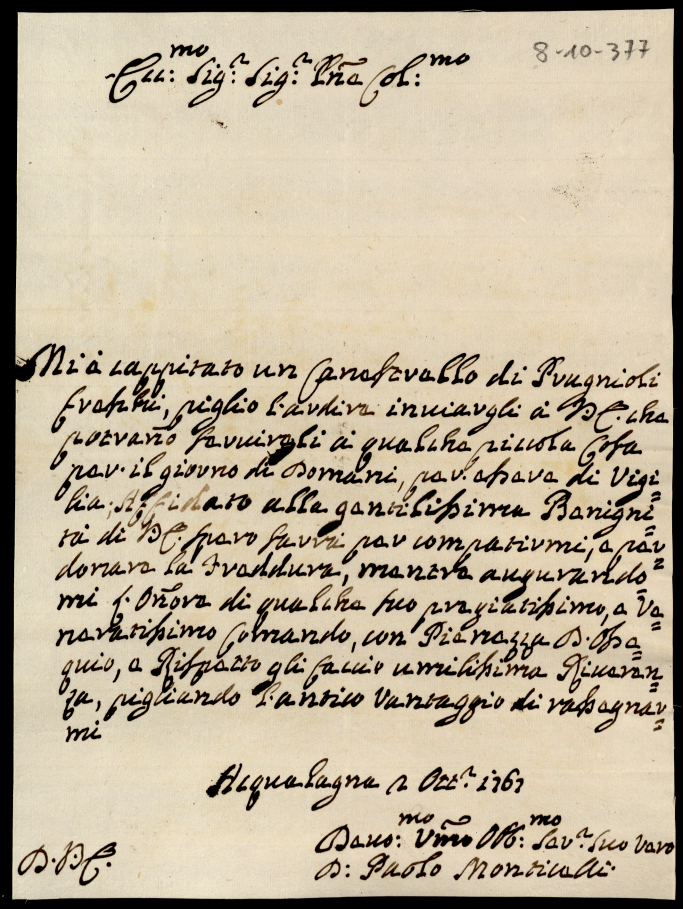 8-10-377
Ecc:mo Sig:r Sig:r Prñe Col:mo
Mi è cappitato un Canestrello di Prugnioli
freschi, piglio l'ardire inviargli à V.E. che
potrano servirgli à qualche piccola Cosa
per il giorno di Domani, per essere di Vigi=
lia; Affidato alla gentilissima Benigni=
tà di V.E. spero saprà per compatirmi, e per=
donare la Freddura, mentre augurando=
mi l'Onore di qualche suo pregiatissimo, e Ve=
neratissimo Comando, con Pienezza D'Osse=
quio, e Rispetto gli faccio umilissima Riveren=
za, pigliando l'antico Vantaggio di rassegnar=
mi
Acqualagna 2 Ott.e 1767
D.V.E.
Devo:mo Umo Obb:mo Ser.r Suo Vero
D: Paolo Monticelli